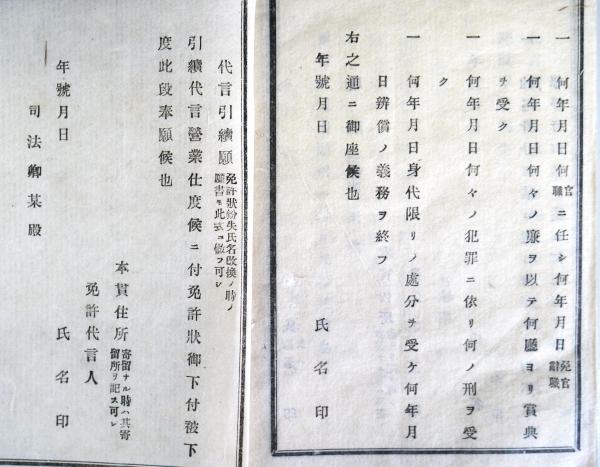 一 何年月日何官職ニ任シ何年月日免官辭職
一 何年月日何々ノ廉ヲ以テ何廳ヨリ賞典
ヲ受ク
一 何年月日何々ノ犯罪ニ依リ何ノ刑ヲ受
ク
一 何年月日身代限リノ處分ヲ受ケ何年月
日辨償ノ義務ヲ終フ
右之通ニ御座候也
年號月日 氏名印
代言引續願 免許狀紛失氏名改換ノ時ノ願書モ此式ニ倣フ可シ
引續代言營業仕度候ニ付免許狀御下付被下
度此段奉願候也
本貫住所 寄留ナル時ハ其寄留所ヲ記ス可シ
免許代言人
年號月日 氏名印
司法卿某殿